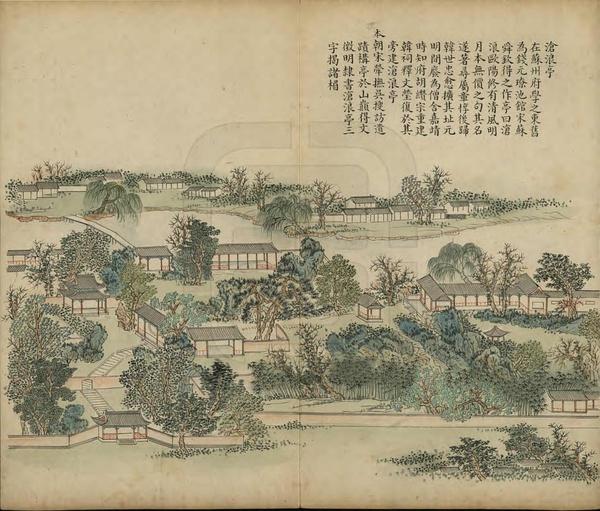 滄浪亭
在蘇州府學之東舊
為錢元璙池館宋蘇
舜欽得之作亭曰滄
浪歐陽修有清風明
月本無價之句其名
遂著尋屬章惇後歸
韓世忠愈擴其址元
明間廢為僧舍嘉靖
時知府胡纘宗重建
韓祠釋文瑩復於其
旁建滄浪亭
本朝宋犖撫吳搜訪遺
蹟構亭於山巔得文
徵明隸書滄浪亭三
字揭諸楣